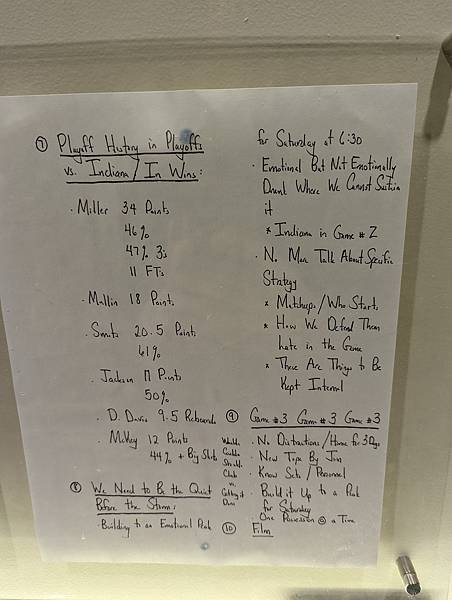 ⑦ Playoff History in Playoffs
vs. Indiana/In Wins:
· Miller 34 Points
46%
47% 3's
11 FTs
· Mullin 18 Points
· Smits 20.5 Points
61%
· Jackson 11 Points
50%
· D. Davis 9.5 Rebounds
McKey 12 Points
44% + Big Shots
⑧ We Need to Be the Quiet
Before the Storm:
· Building to an Emotional Peak
for Saturday at 6:30
· Emotional But Not Emotionally
Drunk Where We Cannot Sustain
it
* Indiana in Game #2
· No More Talk About Specific
Strategy
* Matchups/Who Starts
* How We Defend Them
Late in the Game
* These Are Things to Be
Kept Internal
⑨ Game #3 Game #3 Game #3
· No Distractions/Home for 3 Days
· New Tape By Jim
· Know Sets/Personnel
· Build it Up to a Peak
for Saturday
One Possession @ a Time
Should
Club
vs.
⑩ Film